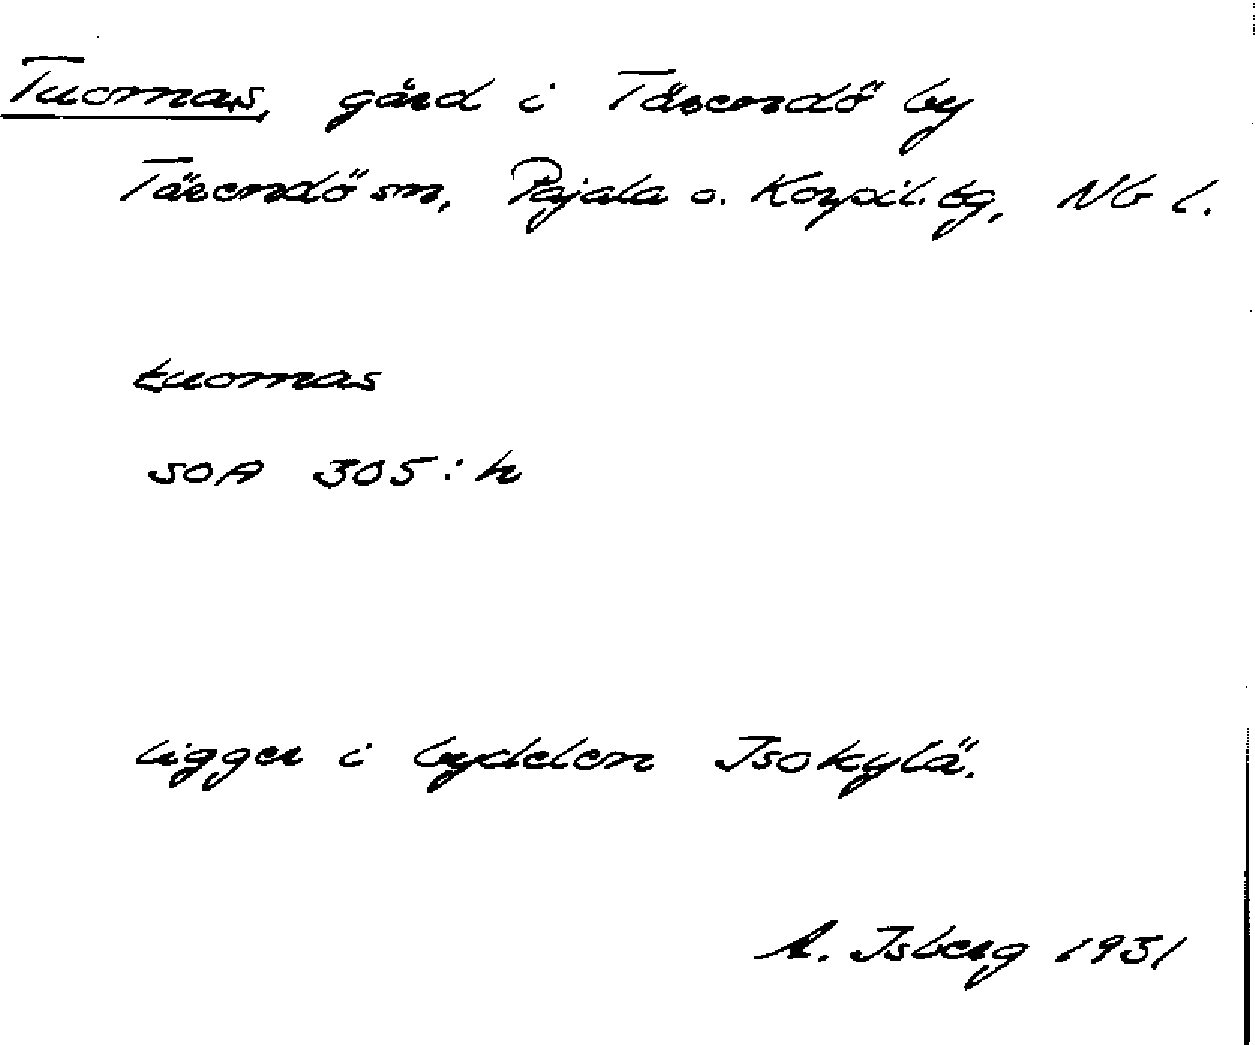 Tuomas, gård i Tärendö by
Tärendö sn, Pajala o. Korpil. tg, Nb l.
tuomas
SOA 305:h
ligger i bydelen Isokylä.
A. Isberg 1931